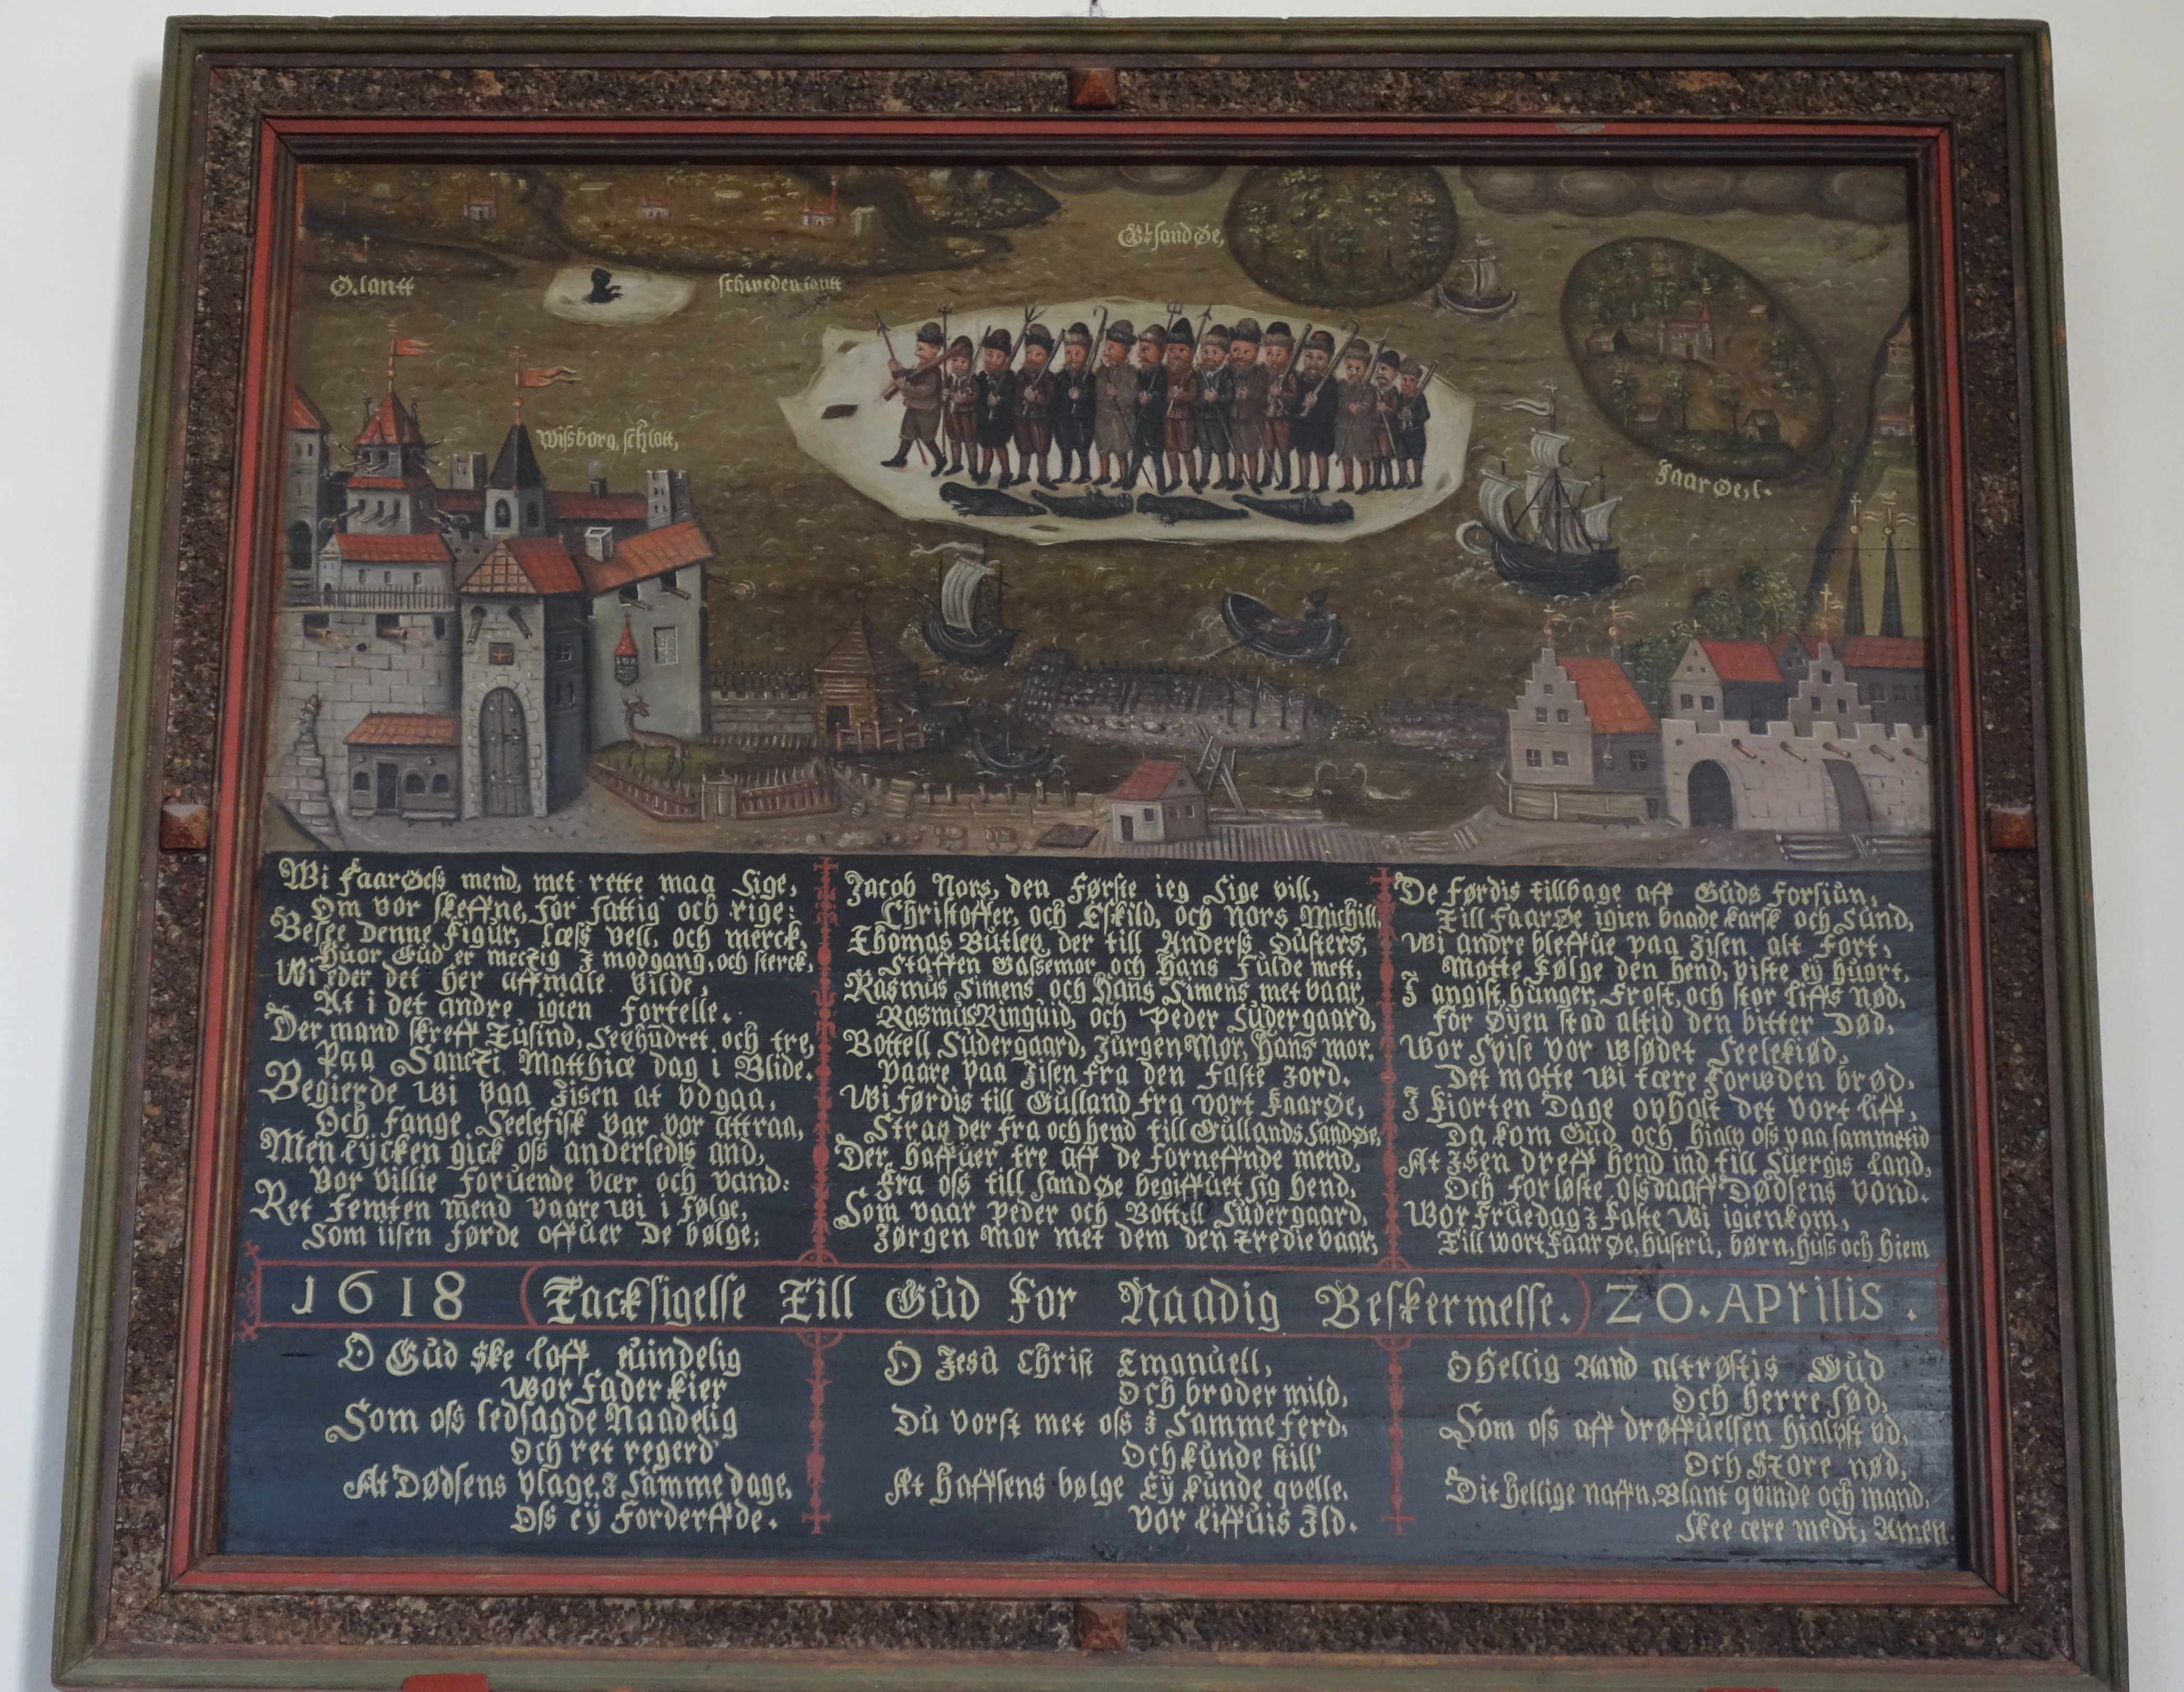 Ø.lantt
schweden lantt
Gt. sand Øe,
Wissborg, schlott,
Faar Øe, l.
Wi faarØess mend, met rette maa sige,
Om vor skeffne, for fattig och rige:
Besee denne Figur, læss vell, och merck,
Huor Gud er mectig I modgang, och sterck,
Wi eder det her affmale vilde,
At i det andre igien fortelle.
Der mand skreff Tusind, Sexhundret, och tre,
Paa Sancti Matthiæ dag i Blide.
Begierde wi paa Iisen at vdgaa,
Och fange Seelefisk var vor attraa,
Men lycken gick oss anderledis and,
Vor villie foruende vær och vand:
Ret femten mend vaare wi i følge,
Som iisen førde offuer De bølge;
Jacob Nors, den første ieg sige vill,
Christoffer, och Eskild, och Nors Michill
Thomas Butley, der till Anderss Dusters,
Staffen Gassemor och Hans fulde mett,
Rasmus Simens och Hans Simens met vaar,
Rasmus Ringuid, och Peder Sudergaard,
Bottell Sudergaard, Jurgen Mor, Hans mor.
Vaare paa Iisen fra den faste Jord.
Wi førdis till Gulland fra vort FaarØe,
Strax der fra och hend till Gullands SandØe,
Der haffuer tre aff de forneffnde mend,
Fra oss till SandØe begiffuet sig hend,
Som vaar Peder och Bottell Sudergaard,
Jørgen Mor met dem den tredie vaar,
De førdis tillbage aff Guds forsiun,
Till FaarØe igien baade karsk och Sund,
Wi andre bleffue paa Iisen alt fort,
Motte følge den hend, viste ey huort,
I angist, hunger, Frost, och stor liffs Nød,
for Øyen stod altid den bitter Død,
Wor Spise vor wsødet Seelekiød,
Det motte wi tære forwden brød,
I fiorten Dage opholt det vort liff,
Da kom Gud och hialp oss paa sammetid
At Isen dreff hend ind till Suergis Land,
Och forløste oss daaff Dødsens vond.
Wor Fruedag I Faste Wi igienkom,
Till wort Faar Øe, hustru, børn, huss och hiem
1618 Tacksigelse Till Gud for Naadig Beskermelse. 20. Aprilis.
O Gud ske loff euindelig
Wor Fader kier
Som oss ledsagde Naadelig
Och ret regerd
At Dødsens plage, I samme dage,
Oss ey Forderffde.
O Jesu Christ Emanuell,
Och broder mild,
Du vorst met oss I Samme ferd,
Och kunde still
At haffsens bølge Ey kunde qvelle,
Vor liffuis Ild.
O hellig Aand altrøstis Gud
Och herre sød,
Som oss aff drøffuelsen hialpst vd,
Och Store nød,
Dit hellige naffn, Blant qvinde och mand,
Skee ære medt, Amen